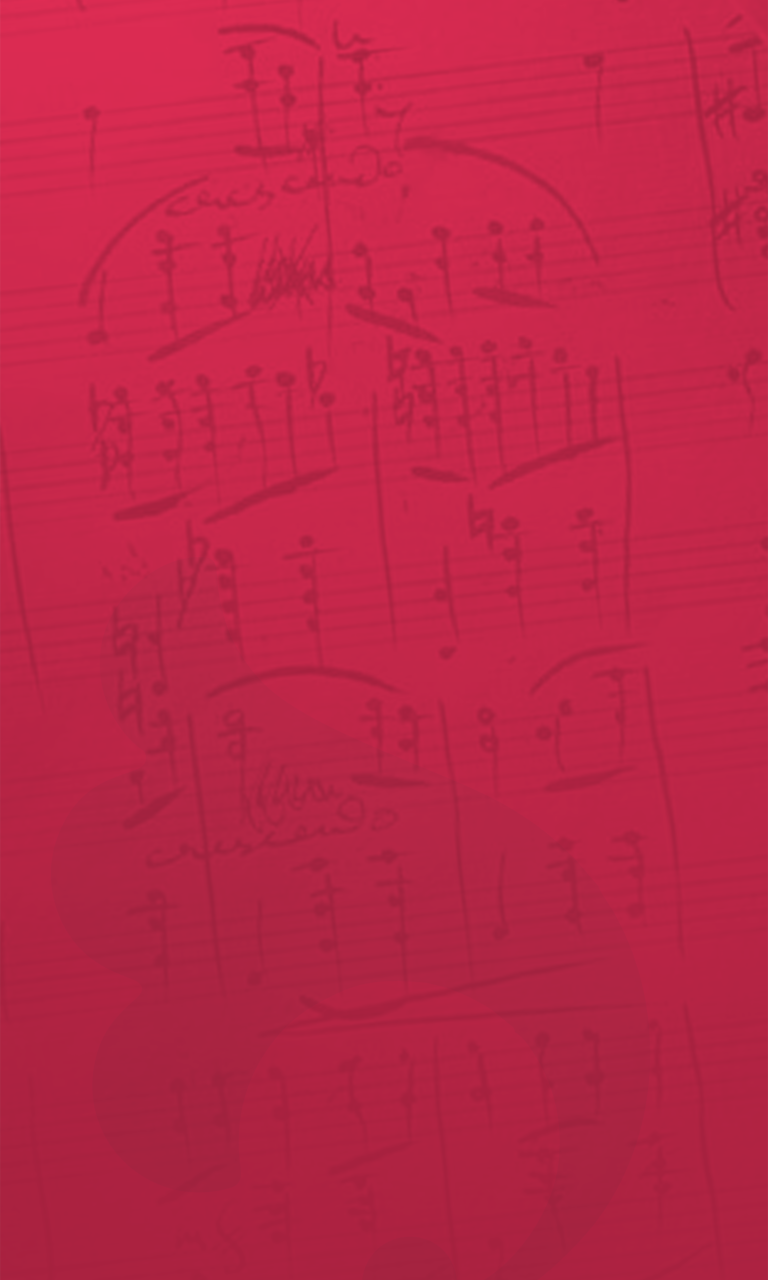 crescendo
crescendo